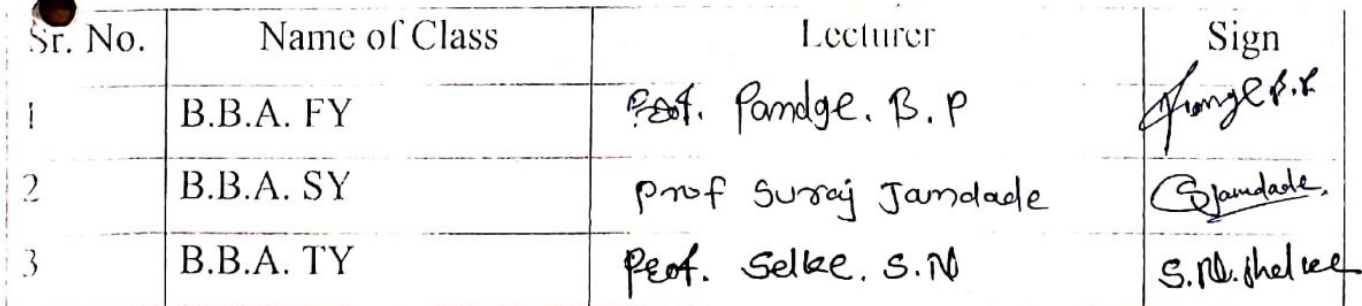 Sr. No. Name of Class Lecturer Sign
1 B.B.A. FY Prof. Pamdge. B.P
2 B.B.A. SY Prof Suraj Jamdade SJamdade.
3 B.B.A. TY Prof. Selke. S.N S.N. Shelke